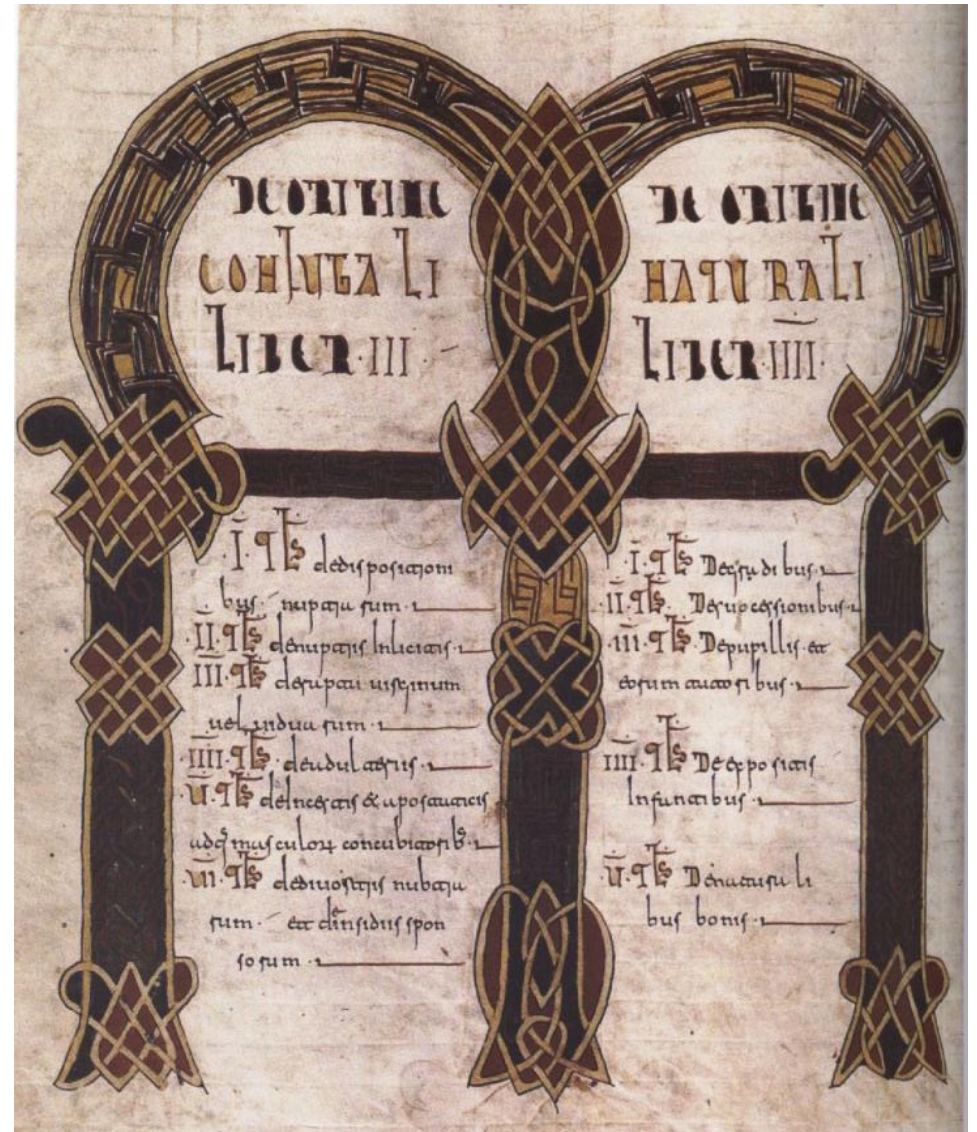 DE ORIGINE
CONIUGALI
LIBER · III ·
I · Tls dedispositioni
bus nuptiarum ·
II · Tls denuptiis Inlicitis ·
III · Tls deraptu uirginum
uel uiduarum ·
IIII · Tls deadulteriis ·
U · Tls deIncestis & apostaticis
adq; masculorum concubitorib; ·
UI · Tls dediuortiis nuptia
rum · et de insidiis spon
sorum ·
DE ORIGINE
NATURALI
LIBER · IIII ·
I · Tls Degradibus ·
II · Tls Desuccessionibus ·
III · Tls Depupillis et
eorum tutoribus ·
IIII · Tls Deexpositis
Infantibus ·
U · Tls Denaturali
bus bonis ·